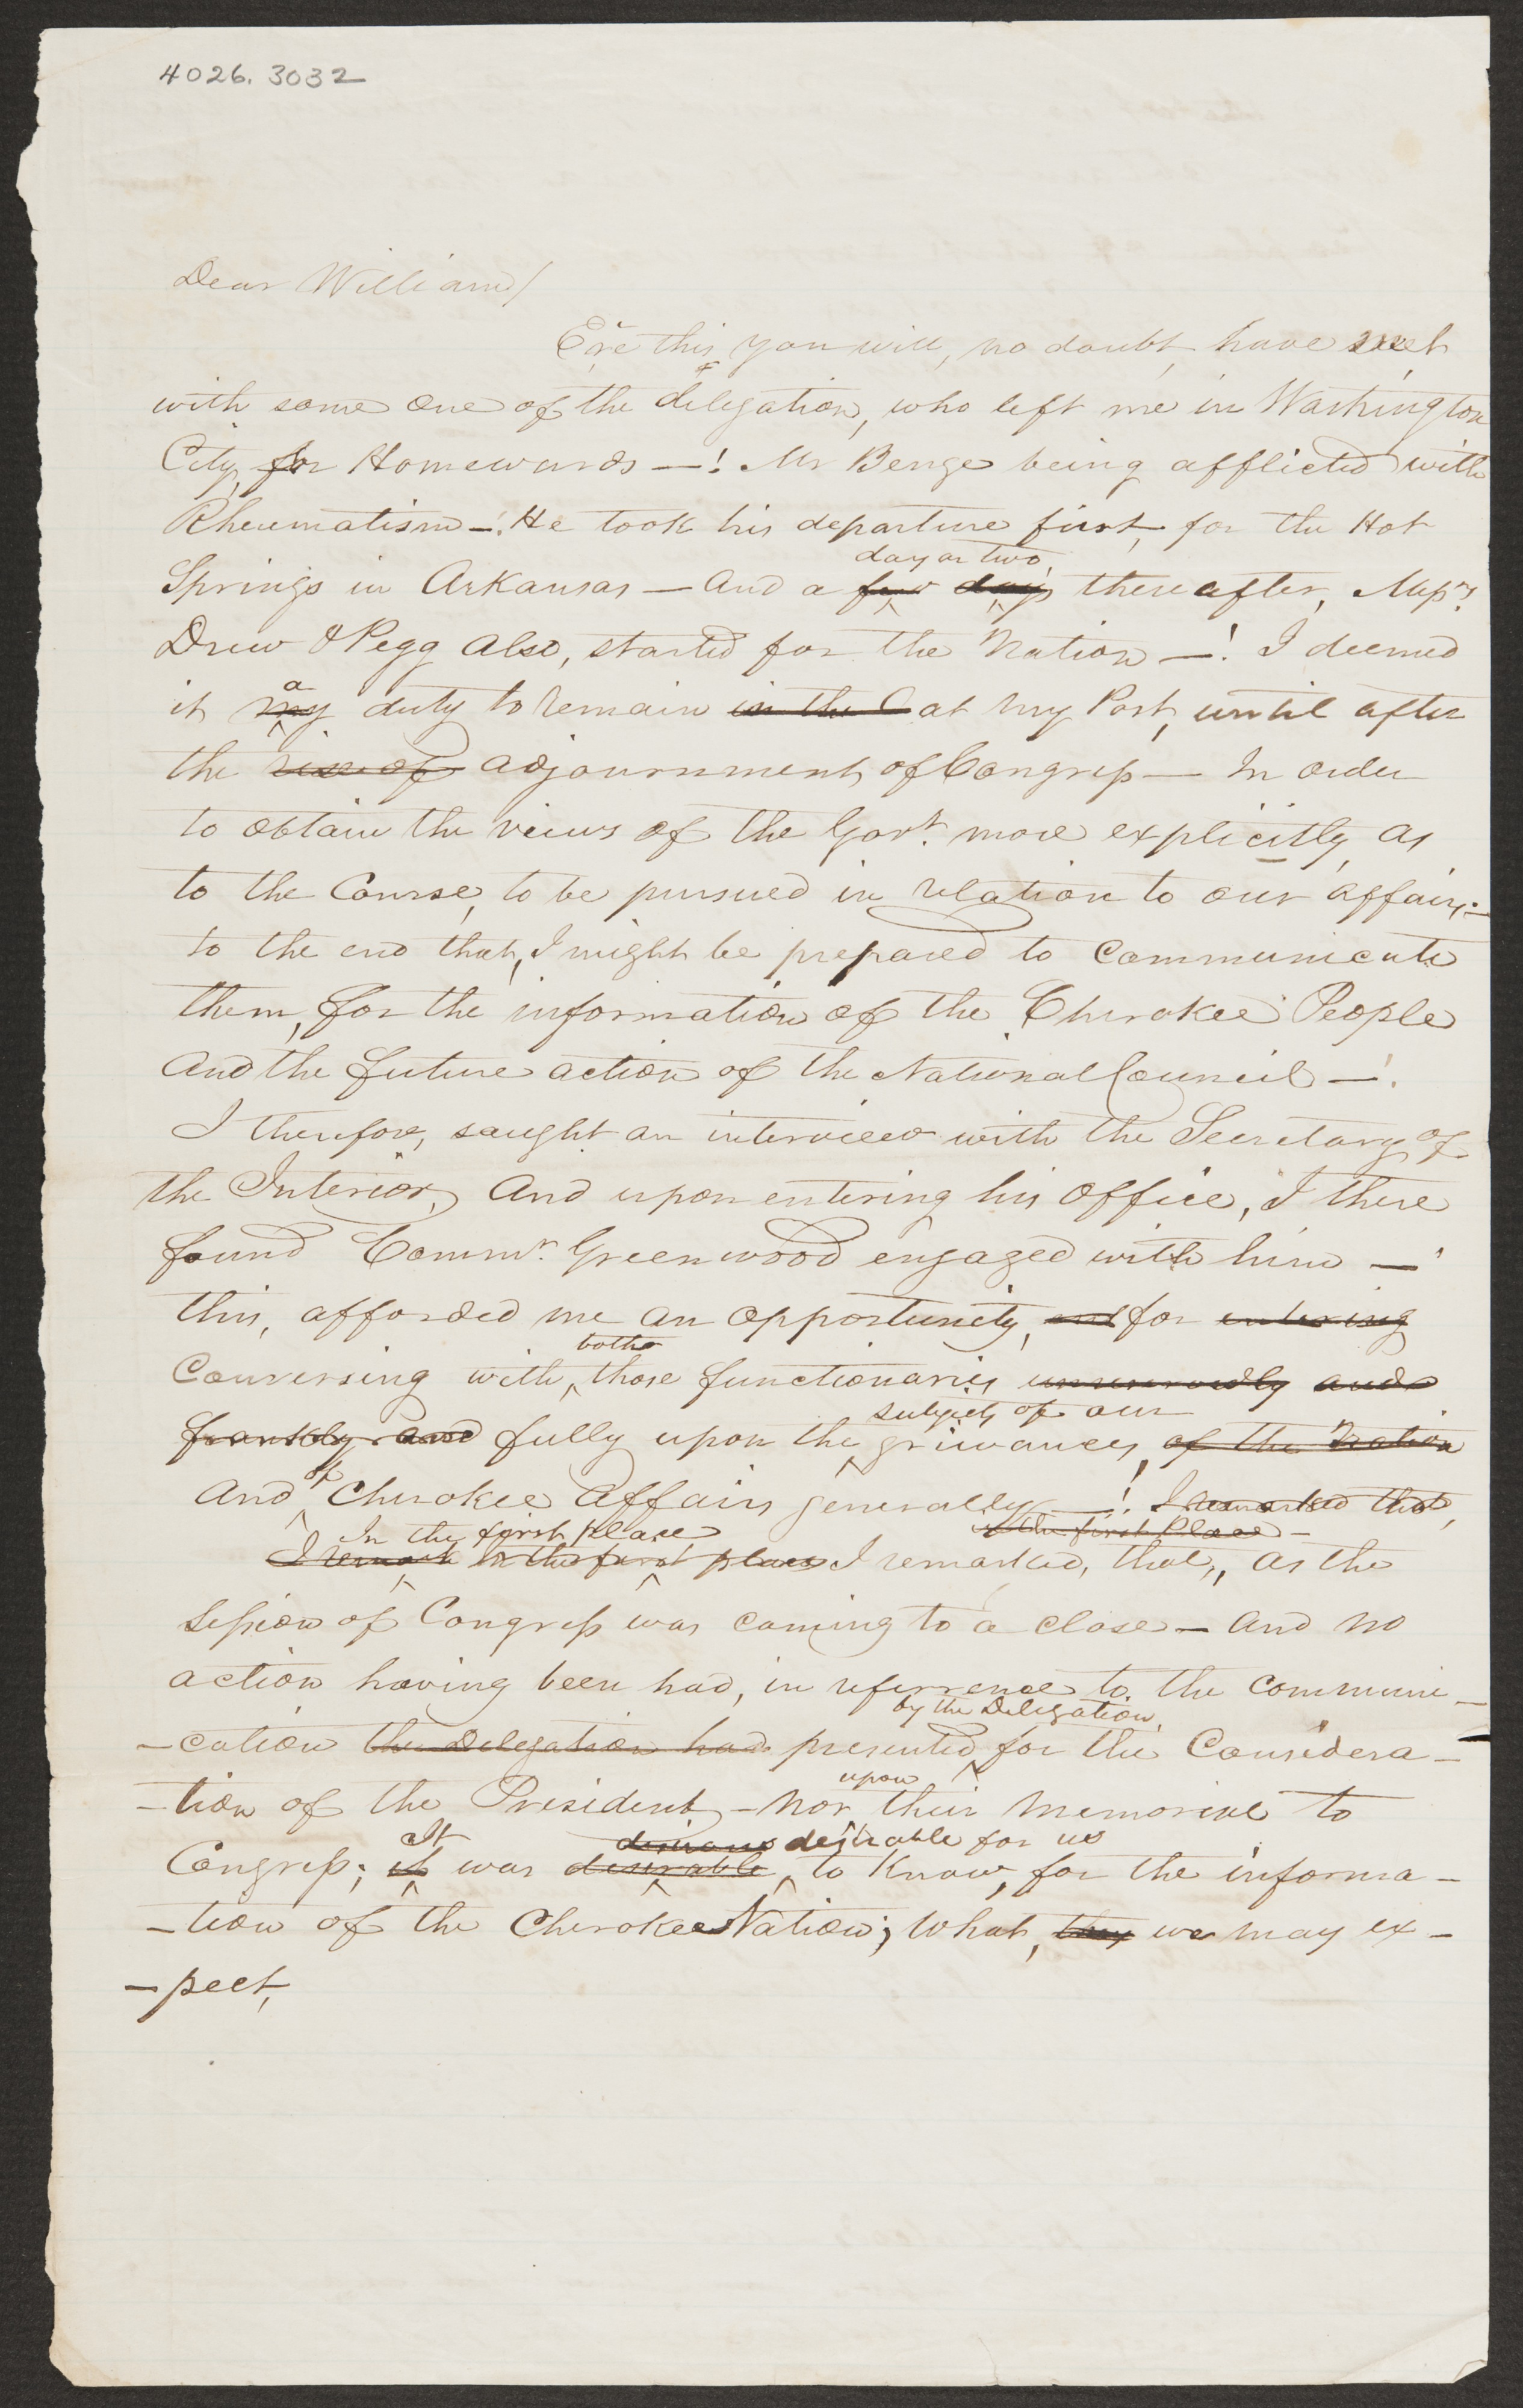 4026.3032
Dear William/
Ere this you will, no doubt, have met
with some one of the delegation, who left me in Washington
City, for Homewards —! Mr Benge being afflicted with
Rheumatism —! He took his departure first, for the Hot
day or two,
Springs in Arkansas — And a few days thereafter, Messrs
Drew & Pegg also, started for the Nation —! I deemed
a
it my duty to remain in the C at my Post, until after
the rise of adjournment of Congress — In order
to obtain the views of the Govt. more explicitly, as
to the Course, to be pursued in relation to our affairs:—
to the end that, I might be prepared to Communicate
them, for the information of the Cherokee People
And the future action of the National Council —!
I therefore, saught an interview with the Secretary of
the Interior, And upon entering his Office, I there
found Commr. Greenwood engaged with him —!
this, afforded me an opportunity, and for entering
both
Conversing with, those functionaries unreservedly and
subjects of our
frankly and fully upon the grievances, of the Nation
of
And Cherokee Affairs generally —! I remarked that,
In the first place in the first Place —
I remark in the first place I remarked, that, as the
Session of Congress was coming to a close — And no
action having been had, in referrence to the Communi-
by the Delegation,
-cation the Delegation had presented for the Considera-
upon
-tion of the President, — Nor their Memorial to
It desirous desirable for us
Congress; it was desirable, to Know, for the informa-
-tion of the Cherokee Nation; What, they we may ex-
-pect,